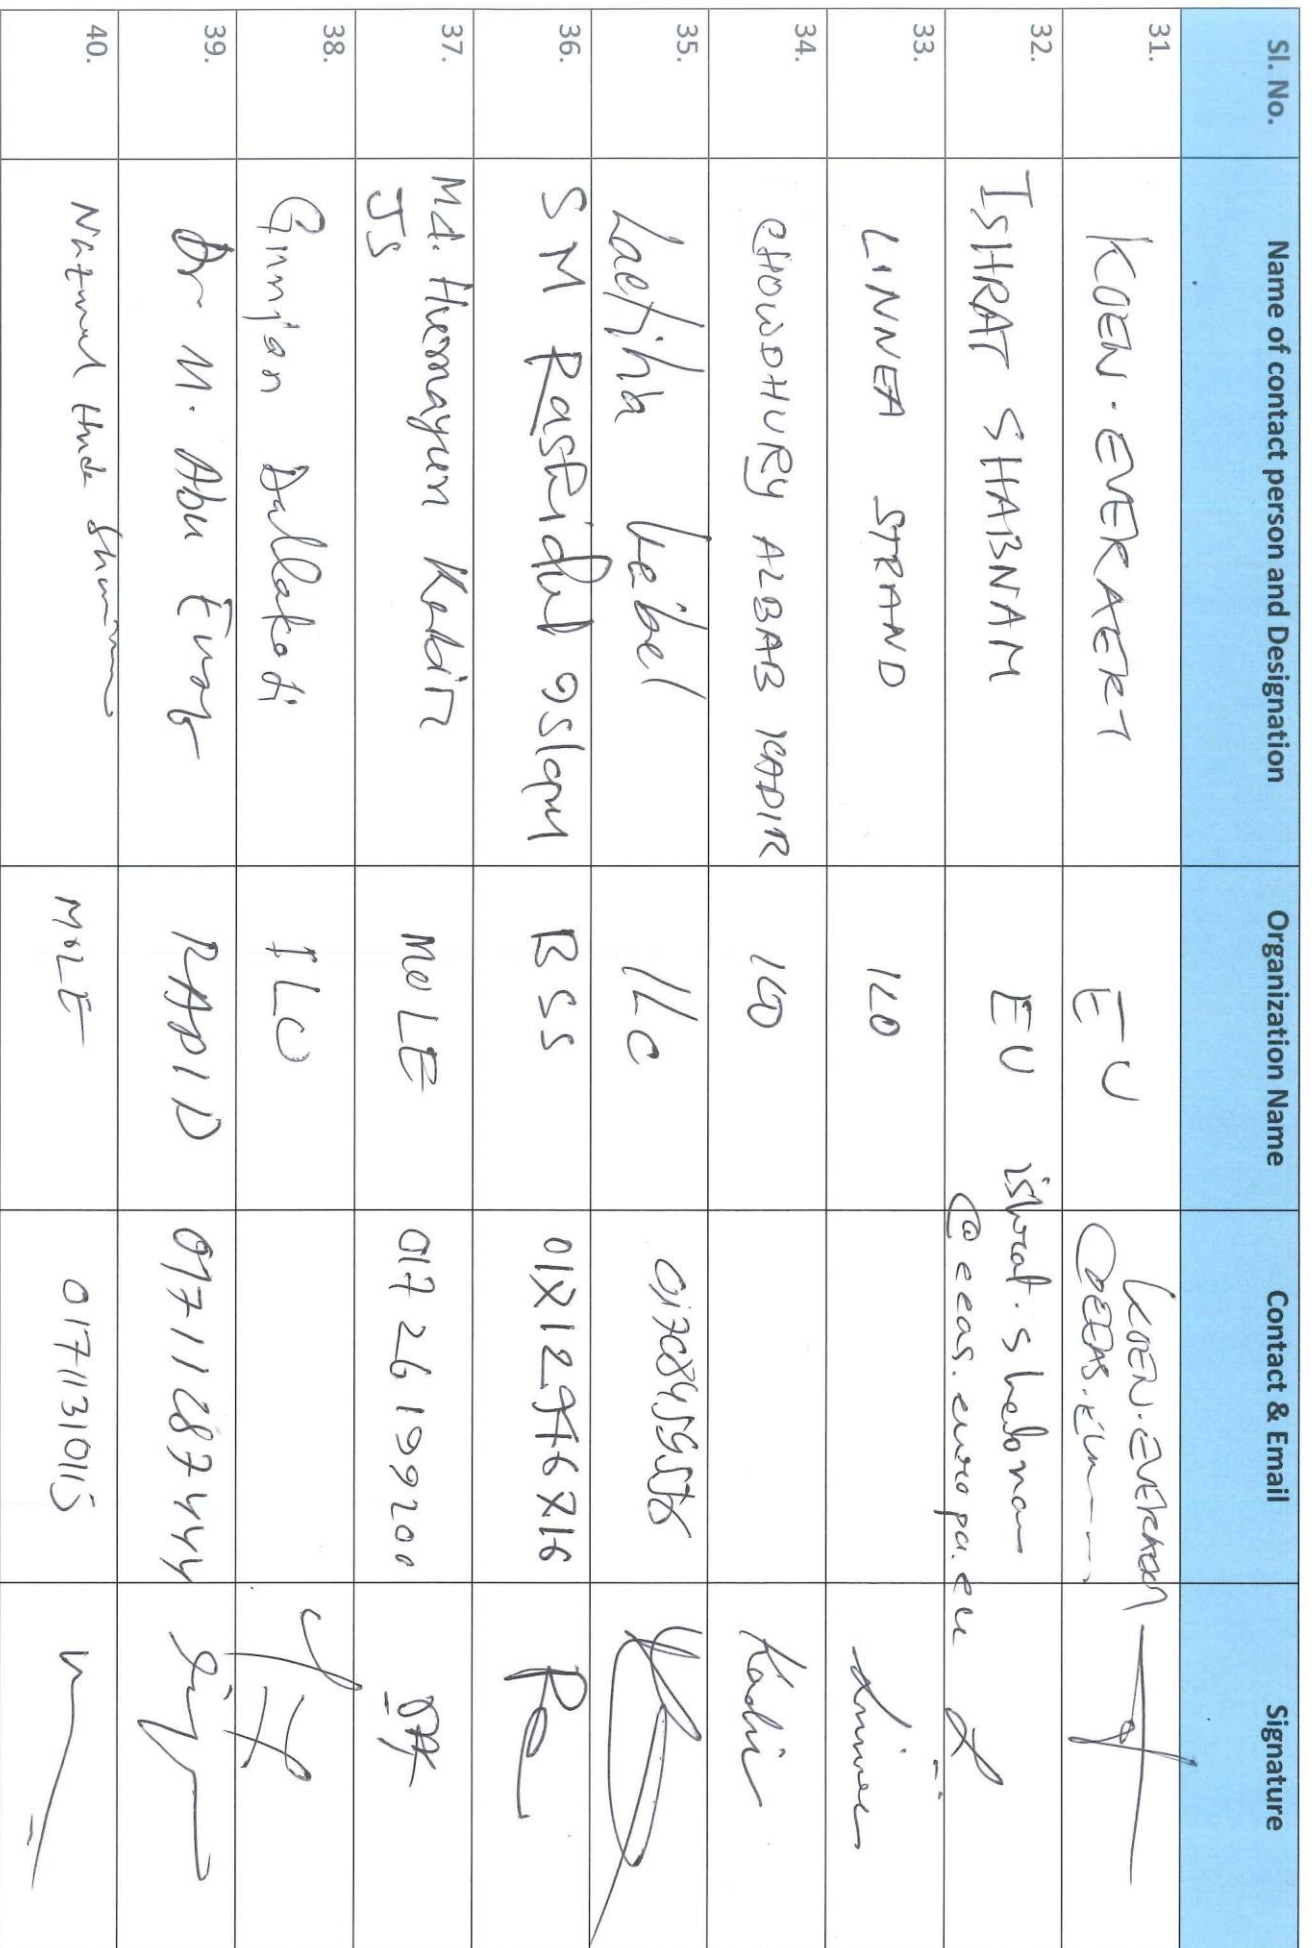 Sl. No. Name of contact person and Designation Organization Name Contact & Email Signature
31. KOEN. EVERAERT EU KOEN.EVERAERT
@EEAS.
32. ISHRAT SHABNAM EU ishrat.shabnam
@eeas.europa.eu
33. LINNEA STRAND ILO Linnea
34. CHOWDHURY ALBAB KADIR ILO Kadir
35. Laetitia
36. S M Rashidul Islam BSS
37. Md. Humayun Kabir MOLE 01726199200
JS
38. Gunnjan Dallakoti ILO
39. Dr M. Abu Eusuf RAPID 01711287444
40. Nazmul Huda Shamim MOLE 01711310115